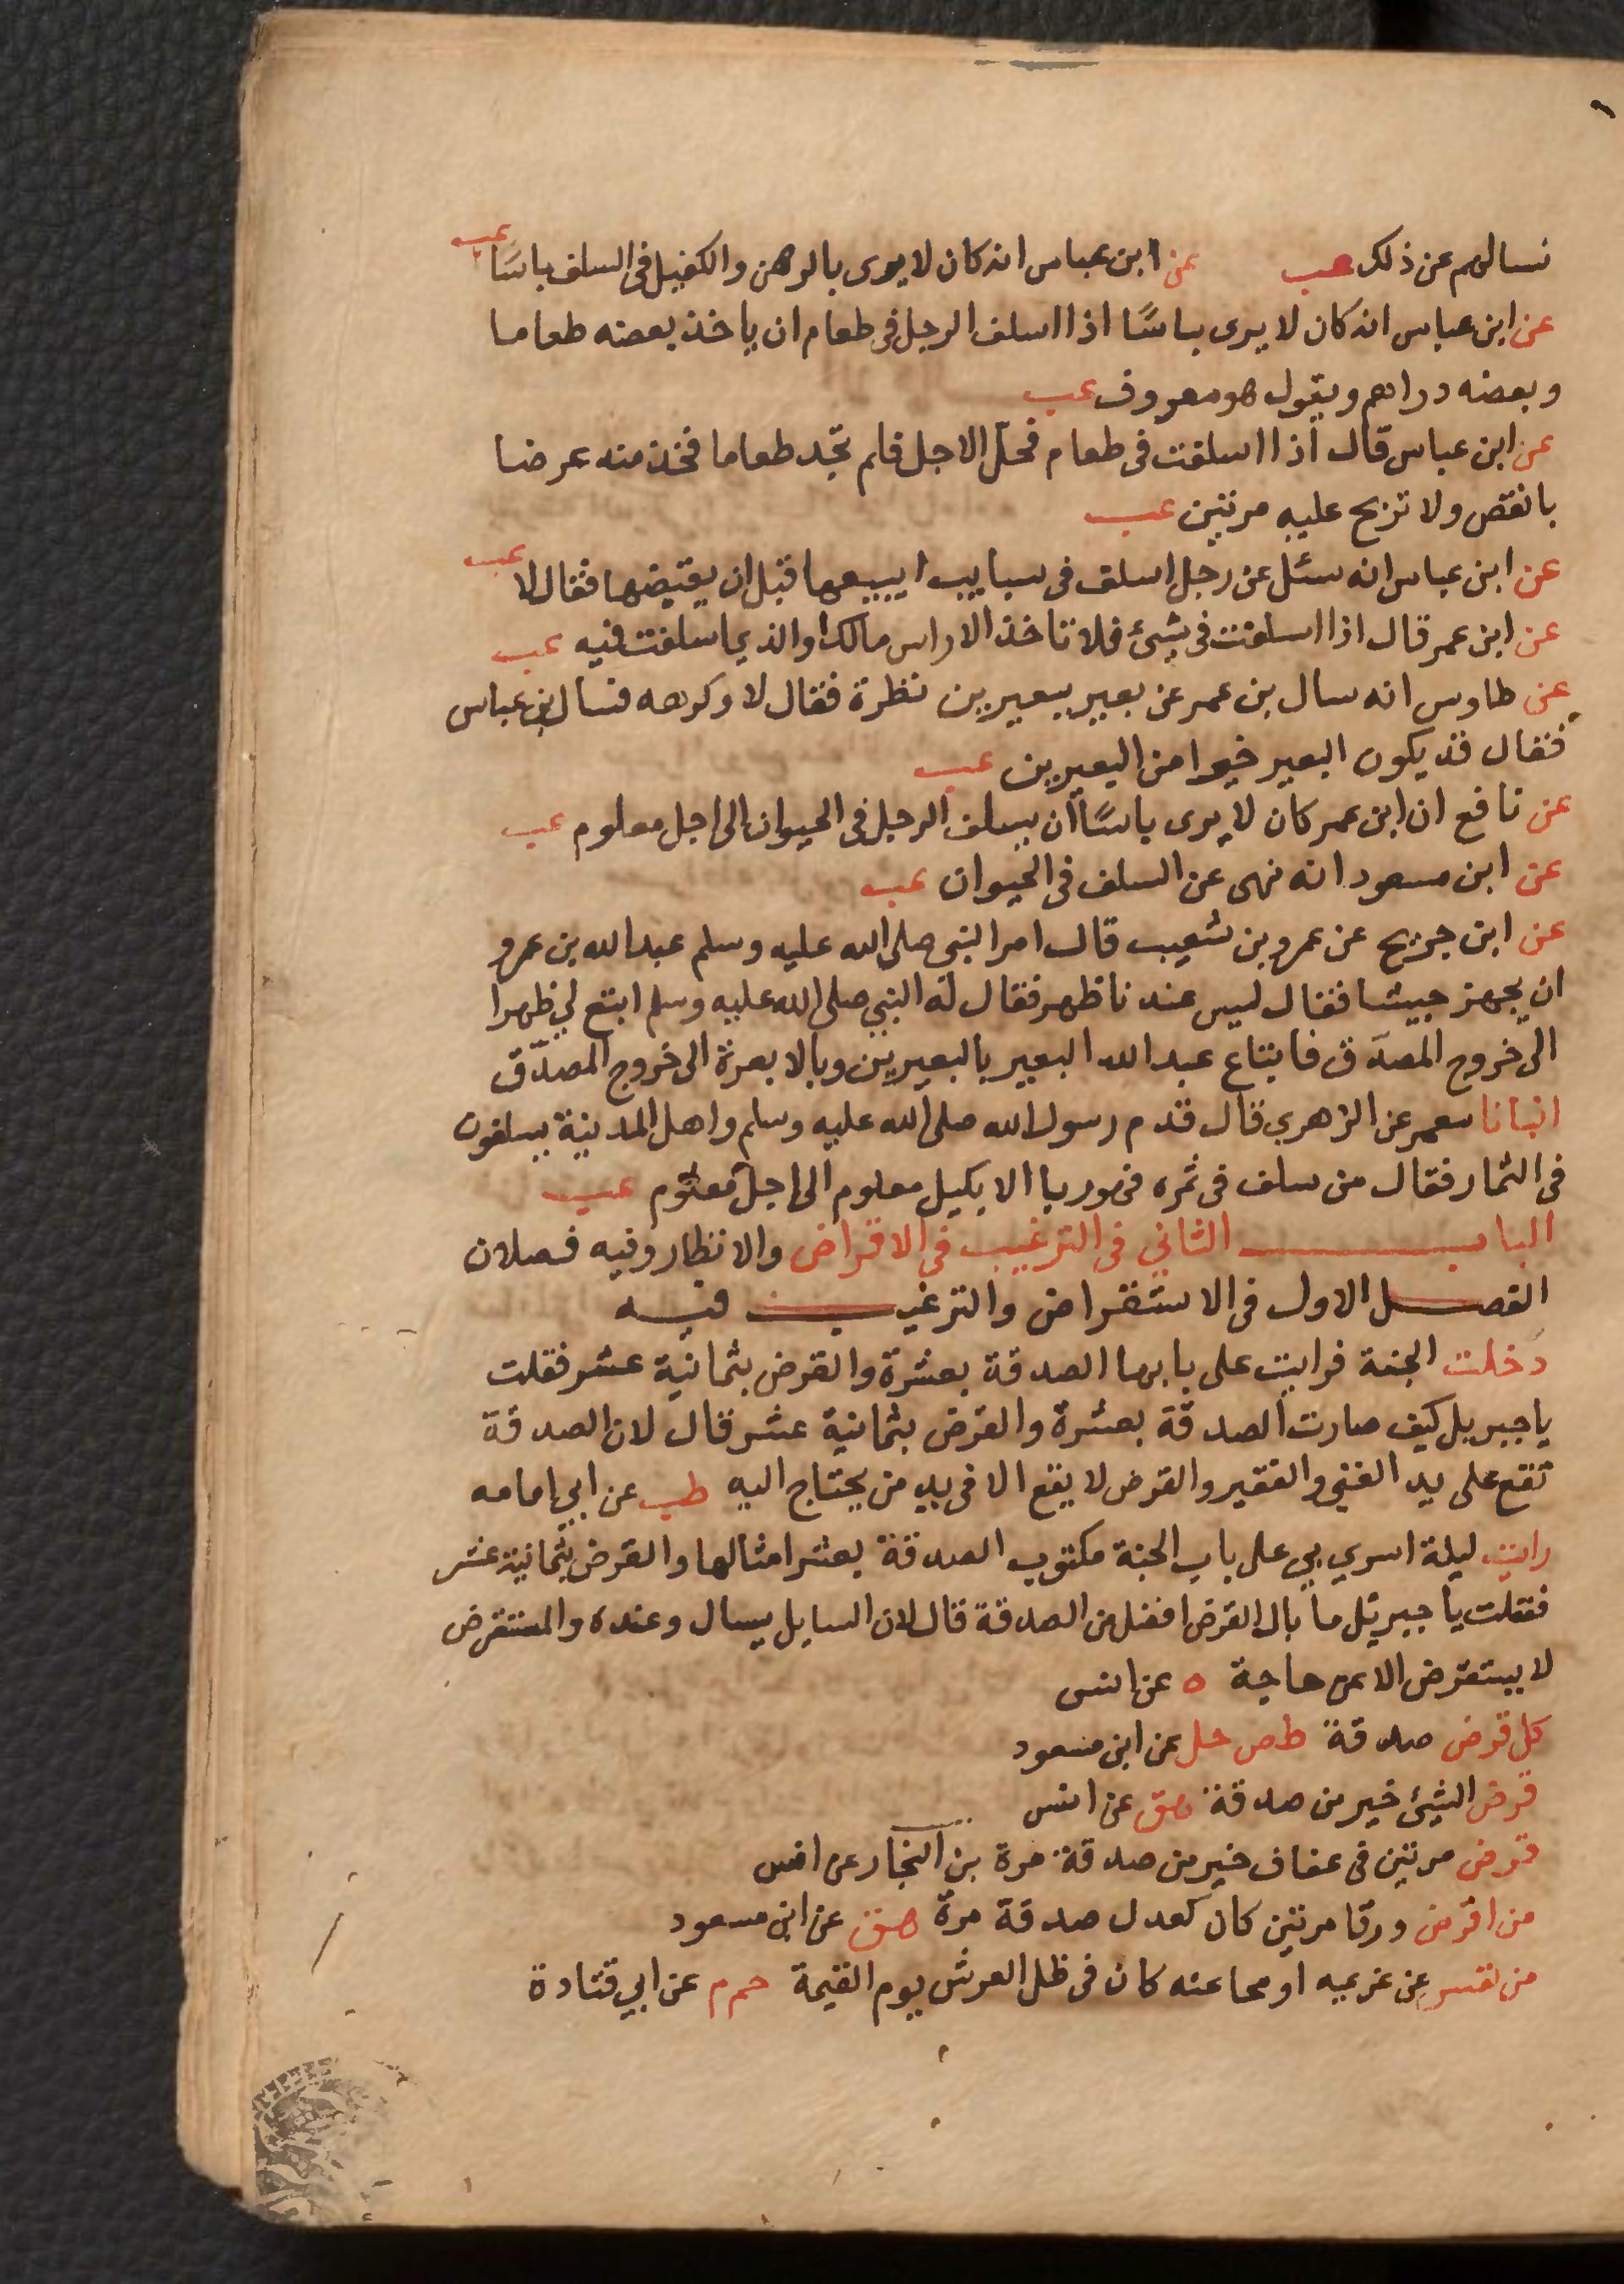 نسالهم عن ذلك عب عن ابن عباس انه كان لا يرى بالرهن والكفيل فى السلف باسًا عب
عن ابن عباس انه كان لا يرى باسًا اذا اسلف الرجل فى طعام ان ياخذ بعضه طعاما
وبعضه دراهم ويقول هو معروف عب
عن ابن عباس قال اذا اسلفت فى طعام فحل الاجل فلم تجد طعاما فخذ منه عرضا
بانقص ولا تربح عليه مرتين عب
عن ابن عباس انه سئل عن رجل اسلف فى سبايب ايبيعها قبل ان يقبضها فقال لا عب
عن ابن عمر قال اذا اسلفت فى شئ فلا تاخذ الا راس مالك او الذي اسلفت فيه عب
عن طاوس انه سال بن عمر عن بعير ببعيرين نظرة فقال لا وكرهه فسال ابن عباس
فقال قد يكون البعير خيرا من البعيرين عب
عن نافع ان ابن عمر كان لا يرى باسًا أن يسلف الرجل فى الحيوان الى اجل معلوم عب
عن ابن مسعود انه نهى عن السلف فى الحيوان عب
عن ابن جريج عن عمرو بن شعيب قال امر النبي صلى الله عليه وسلم عبد الله بن عمرو
ان يجهز جيشا فقال ليس عندنا ظهر فقال له النبي صلى الله عليه وسلم ابتع لي ظهرا
الى خروج المصدق فابتاع عبد الله البعير بالبعيرين وبالابعرة الى خروج المصدّق
انبانا معمر عن الزهري قال قدم رسول الله صلى الله عليه وسلم واهل المدينة يسلفون
فى الثمار فقال من سلف فى ثمره فهو ربا الا بكيل معلوم الى اجل معلوم عب
الباب الثاني فى الترغيب فى الاقراض والانظار وفيه فصلان
الفصل الاول فى الاستقراض والترغيب فيه
دخلت الجنة فرايت على بابها الصدقة بعشرة والقرض بثمانية عشر فقلت
يا جبريل كيف صارت الصدقة بعشرة والقرض بثمانية عشر قال لان الصدقة
تقع على يد الغني والفقير والقرض لا يقع الا فى يد من يحتاج اليه طب عن ابي امامه
رايت ليلة اسري بي على باب الجنة مكتوب الصدقة بعشر امثالها والقرض بثمانية عشر
فقلت يا جبرئل ما بال القرض افضل من الصدقة قال لان السايل يسال وعنده والمستقرض
لا يستقرض الا من حاجة ه عن انس
كل قرض صدقة طص حل عن ابن مسعود
قرض الشئ خير من صدقة هق عن انس
قرض مرتين فى عفاف خير من صدقة مرة بن النجار عن انس
من اقرض ورقا مرتين كان كعدل صدقة مرة هق عن ابن مسعود
من نفس عن غريمه او محا عنه كان فى ظل العرش يوم القيمة حم م عن ابي قتادة